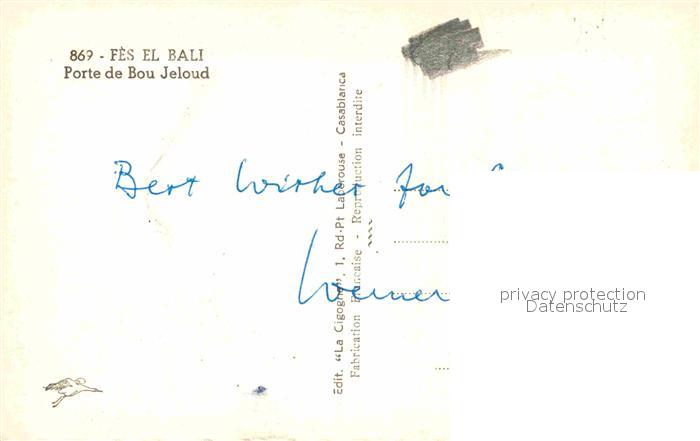 869 - FÈS EL BALI
Porte de Bou Jeloud
Best wishes for
Werner
Edit. "La Cigogne", 1, Rd-Pt Lapérouse - Casablanca
Fabrication Française - Reproduction interdite
privacy protection
Datenschutz